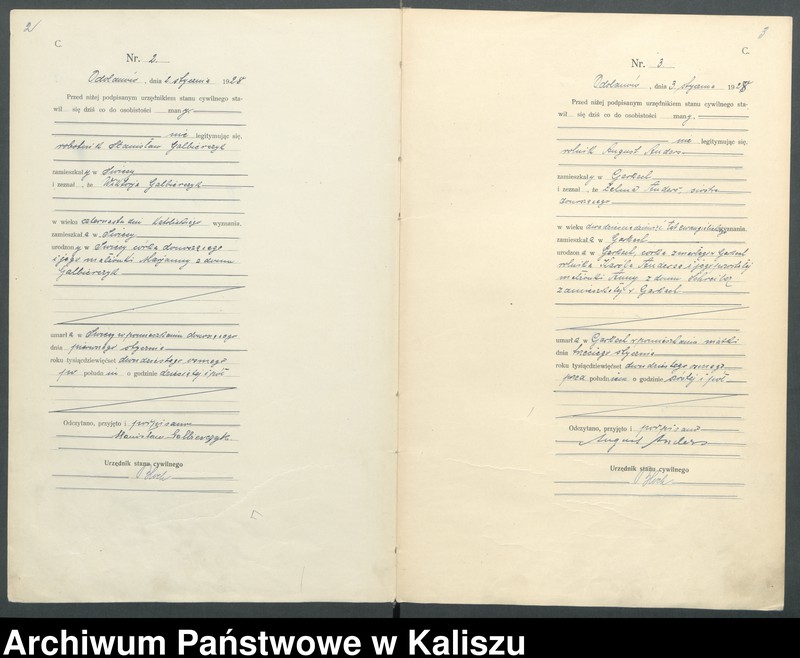 2
C.
Nr. 2.
Odolanów, dnia 2 stycznia 1928
Przed niżej podpisanym urzędnikiem stanu cywilnego sta-
wił się dziś co do osobistości
nie legitymując się.
robotnik Stanisław Galbierczyk
zamieszkały w Świecy
i zeznał, że Wiktorja Galbierczyk
w wieku czternastu dni katolickiego wyznania.
zamieszkała w Świecy
urodzona w Świecy córka donoszącego
i jego małżonki Marjanny z domu
Galbierczyk
umarła w Świecy w pomieszkaniu donoszącego
dnia pierwszego stycznia
roku tysiącdziewięćset dwudziestego ósmego
po południu o godzinie dziesiątej i pół
Odczytano, przyjęto i podpisano
Stanisław Galbierczyk
Urzędnik stanu cywilnego
Hoch
3
C.
Nr. 3.
Odolanów, dnia 3. stycznia 1928
Przed niżej podpisanym urzędnikiem stanu cywilnego sta-
wił się dziś co do osobistości
nie legitymując się.
rolnik August Anders
zamieszkały w Garbent
i zeznał, że Anders, siostra
donoszącego
w wieku lat wyznania.
zamieszkała w Garbent
urodzona w Garbent, córka zmarłego w Garbent
rolnika Karola Andersa i jego pozostałej
małżonki Anny z domu
zamieszkałej w Garbent
umarła w Garbent w pomieszkaniu matki
dnia trzeciego stycznia
roku tysiącdziewięćset dwudziestego ósmego
przed południem o godzinie i pół
Odczytano, przyjęto i podpisano
August Anders
Urzędnik stanu cywilnego
Hoch
Archiwum Państwowe w Kaliszu